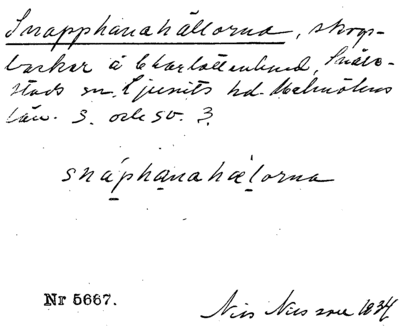 Snapphanahällorna, skogs-
backar å Charlottenlund, Snåre-
stads sn. Ljunits hd. Malmöhus
län. S. och SV. ?
snáphanahælorna
Nr 5667.
Nils Nilsson 1934